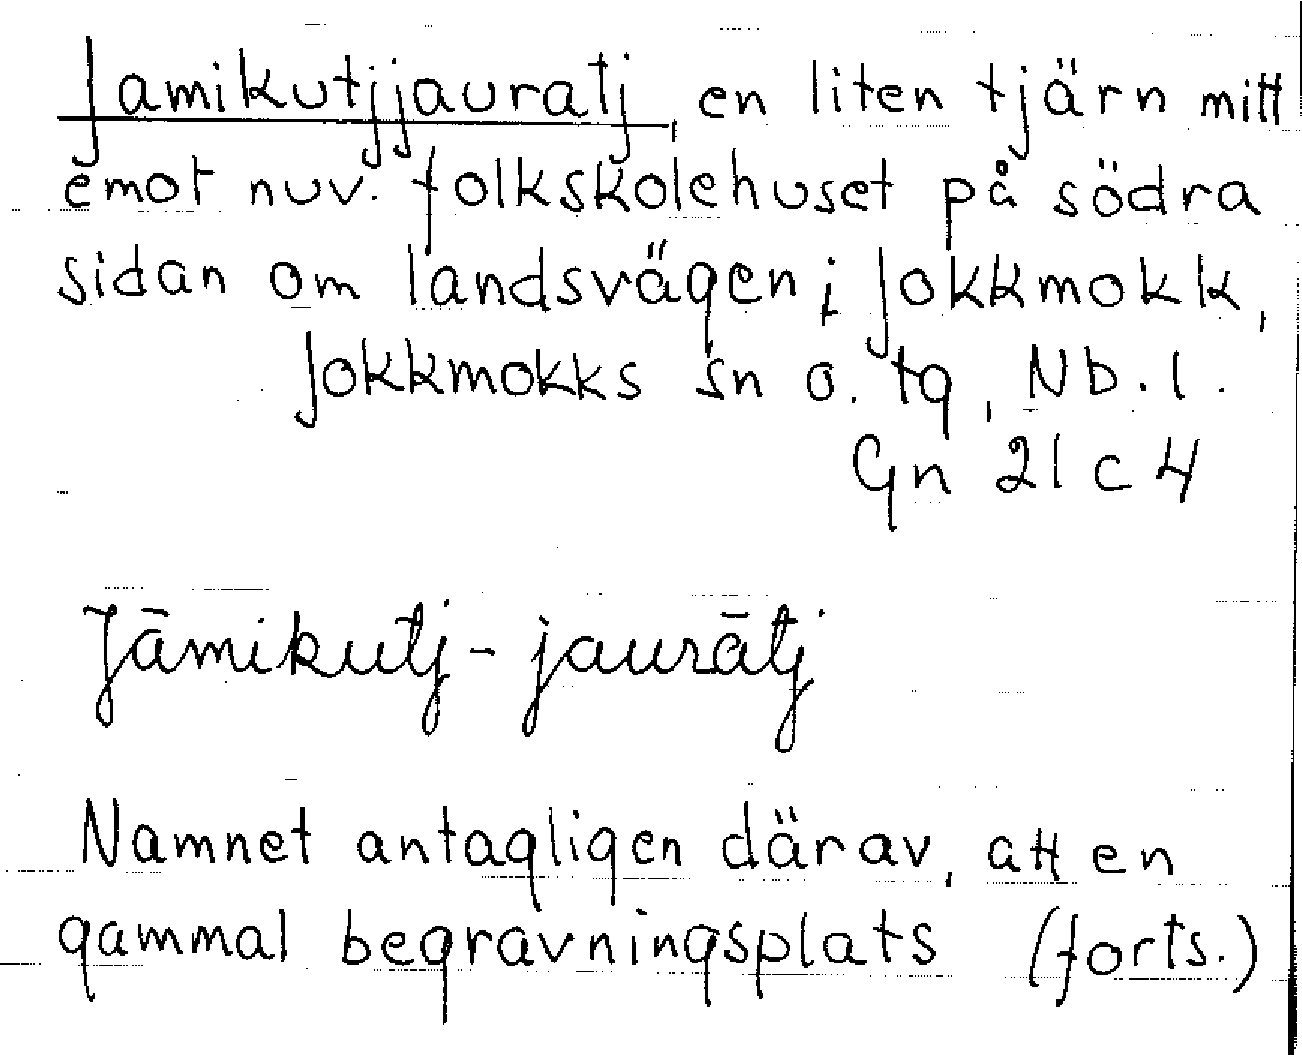 Jamikutjjauratj, en liten tjärn mitt
emot nuv. folkskolehuset på södra
sidan om landsvägen i Jokkmokk,
Jokkmokks sn o. tg, Nb. l.
Gn 21 c 4
Jāmikutj-jaurātj
Namnet antagligen därav, att en
gammal begravningsplats (forts.)